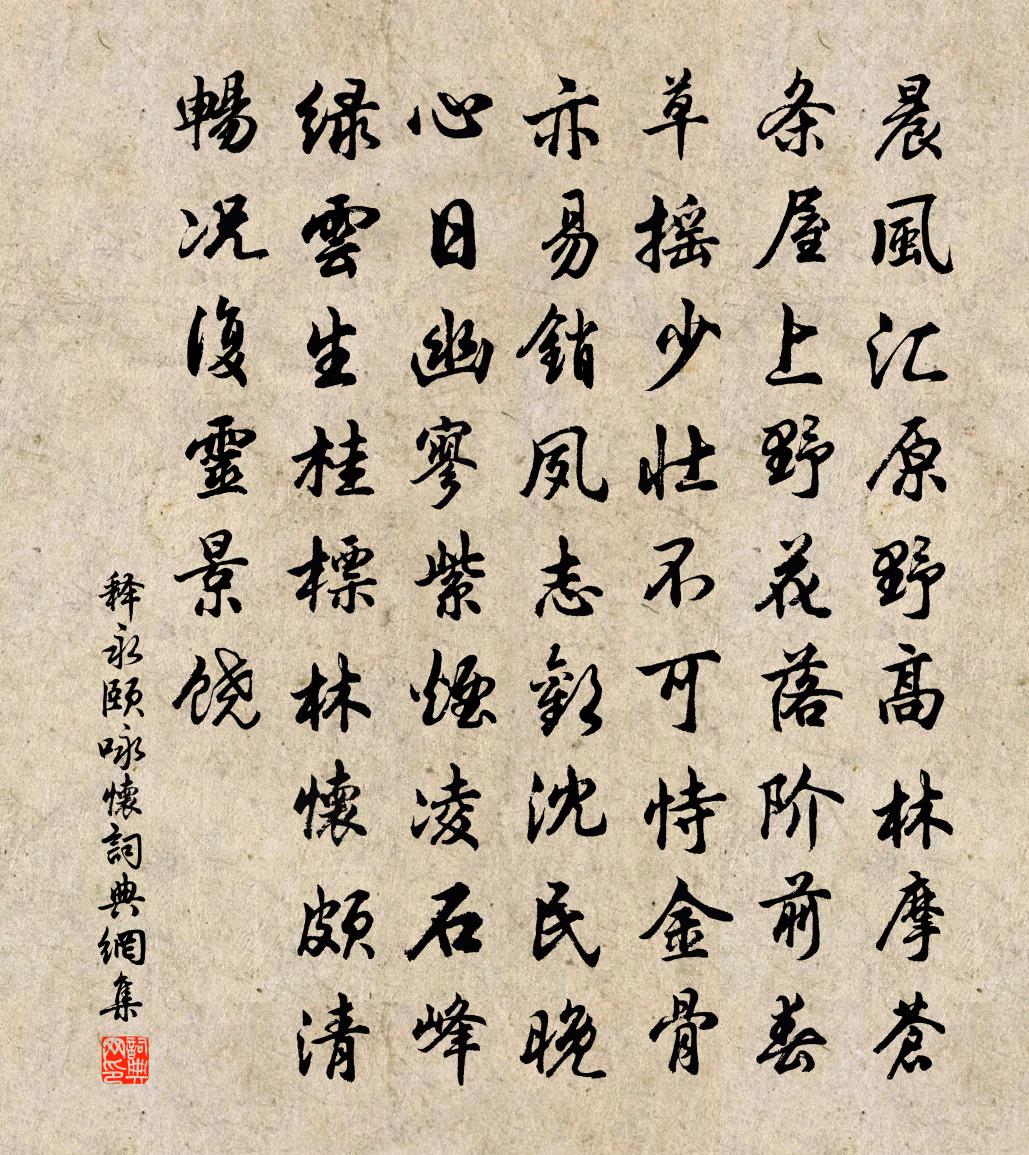 晨風汇原野高林摩蒼
条屋上野花落阶前春
草摇少壮不可恃金骨
亦易銷夙志沈民晚
心日幽寥紫煙凌石峰
緑雲生桂標林懷頗清
暢况復靈景饒
释永頤咏懷詞典網集
詞典网印